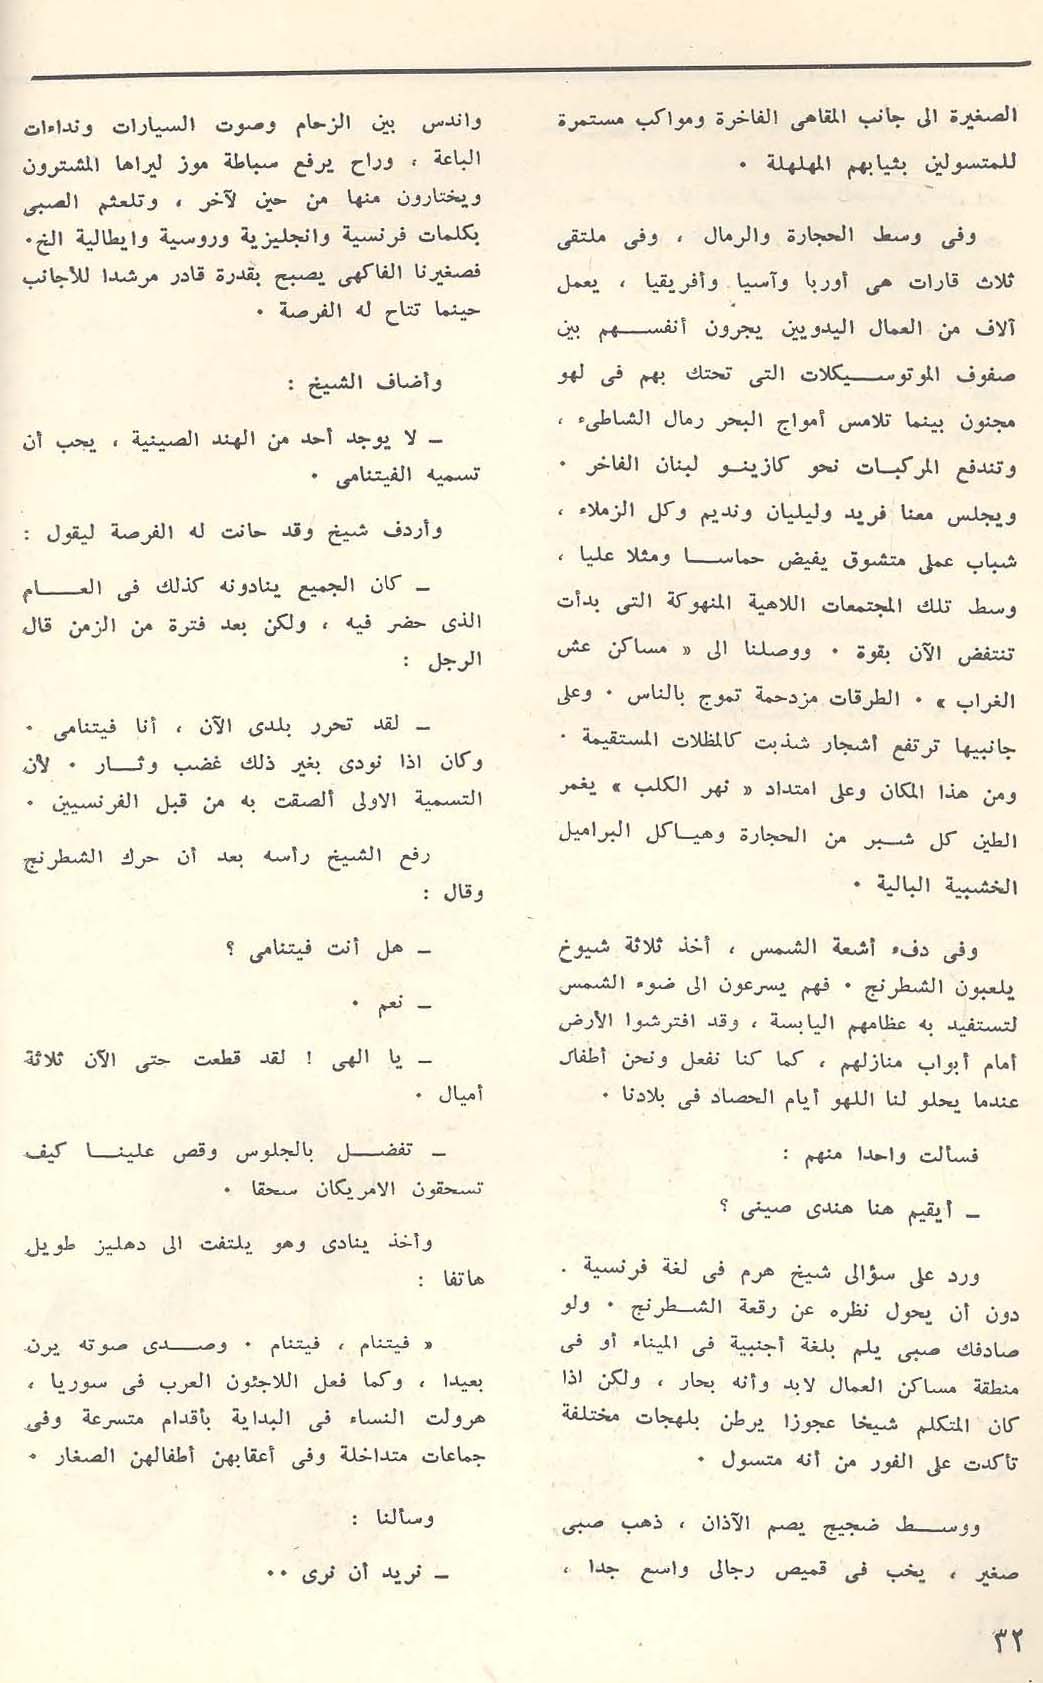 الصغيرة الى جانب المقاهى الفاخرة ومواكب مستمرة
للمتسولين بثيابهم المهلهلة ٠
وفى وسط الحجارة والرمال ، وفى ملتقى
ثلاث قارات هى أوربا وآسيا وأفريقيا ، يعمل
آلاف من العمال اليدويين يجرون أنفسهم بين
صفوف الموتوسيكلات التى تحتك بهم فى لهو
مجنون بينما تلامس أمواج البحر رمال الشاطىء ،
وتندفع المركبات نحو كازينو لبنان الفاخر ٠
ويجلس معنا فريد وليليان ونديم وكل الزملاء ،
شباب عملى متشوق يفيض حماسا ومثلا عليا ،
وسط تلك المجتمعات اللاهية المنهوكة التى بدأت
تنتفض الآن بقوة ٠ ووصلنا الى « مساكن عش
الغراب » ٠ الطرقات مزدحمة تموج بالناس ٠ وعلى
جانبيها ترتفع أشجار شذبت كالمظلات المستقيمة ٠
ومن هذا المكان وعلى امتداد « نهر الكلب » يغمر
الطين كل شبر من الحجارة وهياكل البراميل
الخشبية البالية ٠
وفى دفء أشعة الشمس ، أخذ ثلاثة شيوخ
يلعبون الشطرنج ٠ فهم يسرعون الى ضوء الشمس
لتستفيد به عظامهم اليابسة ، وقد افترشوا الأرض
أمام أبواب منازلهم ، كما كنا نفعل ونحن أطفال
عندما يحلو لنا اللهو أيام الحصاد فى بلادنا ٠
فسألت واحدا منهم :
ـ أيقيم هنا هندى صينى ؟
ورد على سؤالى شيخ هرم فى لغة فرنسية .
دون أن يحول نظره عن رقعة الشطرنج ٠ ولو
صادفك صبى يلم بلغة أجنبية فى الميناء أو فى
منطقة مساكن العمال لابد وأنه بحار ، ولكن اذا
كان المتكلم شيخا عجوزا يرطن بلهجات مختلفة
تأكدت على الفور من أنه متسول ٠
ووسط ضجيج يصم الآذان ، ذهب صبى
صغير ، يخب فى قميص رجالى واسع جدا ،
واندس بين الزحام وصوت السيارات ونداءات
الباعة ، وراح يرفع سباطة موز ليراها المشترون
ويختارون منها من حين لآخر ، وتلعثم الصبى
بكلمات فرنسية وانجليزية وروسية وايطالية الخ٠
فصغيرنا الفاكهى يصبح بقدرة قادر مرشدا للأجانب
حينما تتاح له الفرصة ٠
وأضاف الشيخ :
ـ لا يوجد أحد من الهند الصينية ، يحب أن
تسميه الفيتنامى ٠
وأردف شيخ وقد حانت له الفرصة ليقول :
ـ كان الجميع ينادونه كذلك فى العام
الذى حضر فيه ، ولكن بعد فترة من الزمن قال
الرجل :
ـ لقد تحرر بلدى الآن ، أنا فيتنامى ٠
وكان اذا نودى بغير ذلك غضب وثار ٠ لأن
التسمية الاولى ألصقت به من قبل الفرنسيين ٠
رفع الشيخ رأسه بعد أن حرك الشطرنج
وقال :
ـ هل أنت فيتنامى ؟
ـ نعم ٠
ـ يا الهى ! لقد قطعت حتى الآن ثلاثة
أميال ٠
ـ تفضل بالجلوس وقص علينا كيف
تسحقون الامريكان سحقا ٠
وأخذ ينادى وهو يلتفت الى دهليز طويل
هاتفا :
« فيتنام ، فيتنام ٠ وصدى صوته يرن
بعيدا ، وكما فعل اللاجئون العرب فى سوريا ،
هرولت النساء فى البداية بأقدام متسرعة وفى
جماعات متداخلة وفى أعقابهن أطفالهن الصغار ٠
وسألنا :
ـ نريد أن نرى ٠٠
٣٢